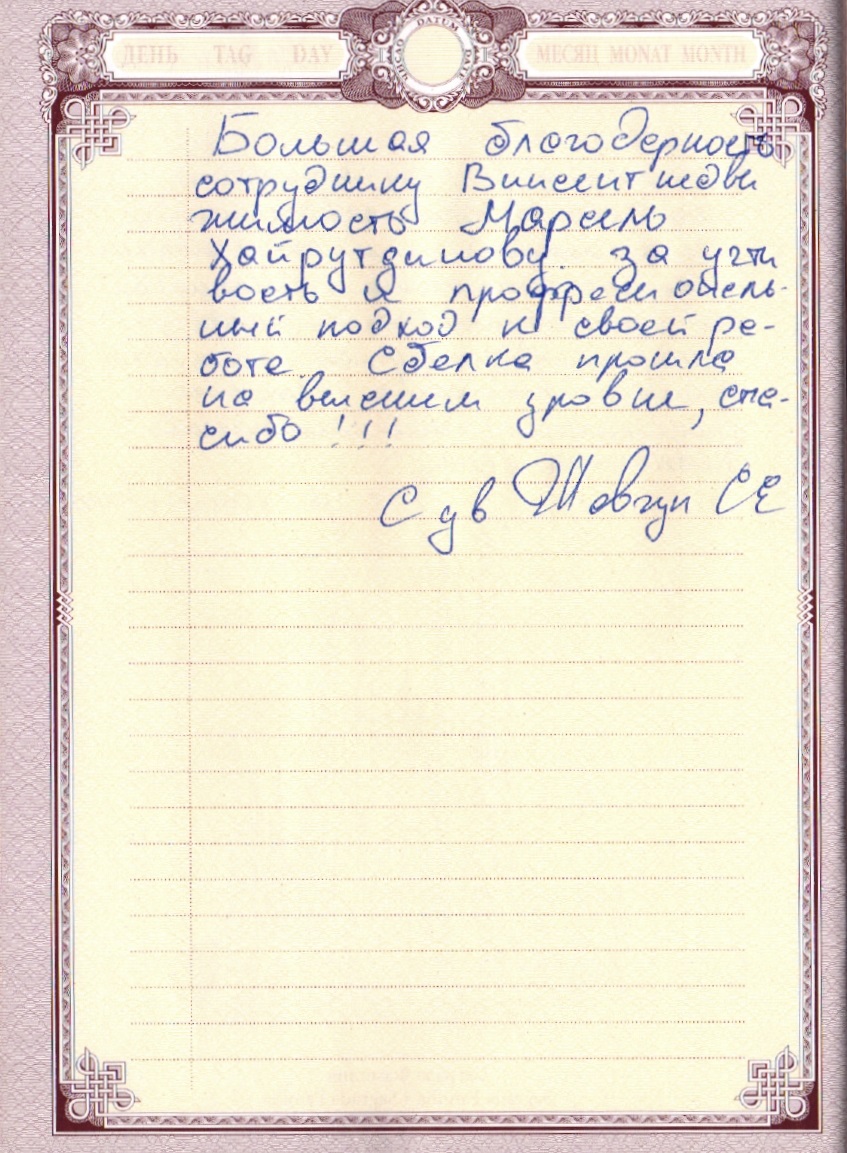 ДЕНЬ TAG DAY
ЧИСЛО DATUM DATE
МЕСЯЦ MONAT MONTH
Большая благодарность
сотруднику Винсент недви
жимость Марсель
Хайрутдинову. за учти
вость и професиональ-
ный подход к своей ра-
боте. Сделка прошла
на высшем уровне, спа-
сибо !!!
С ув Шевчук СЕ